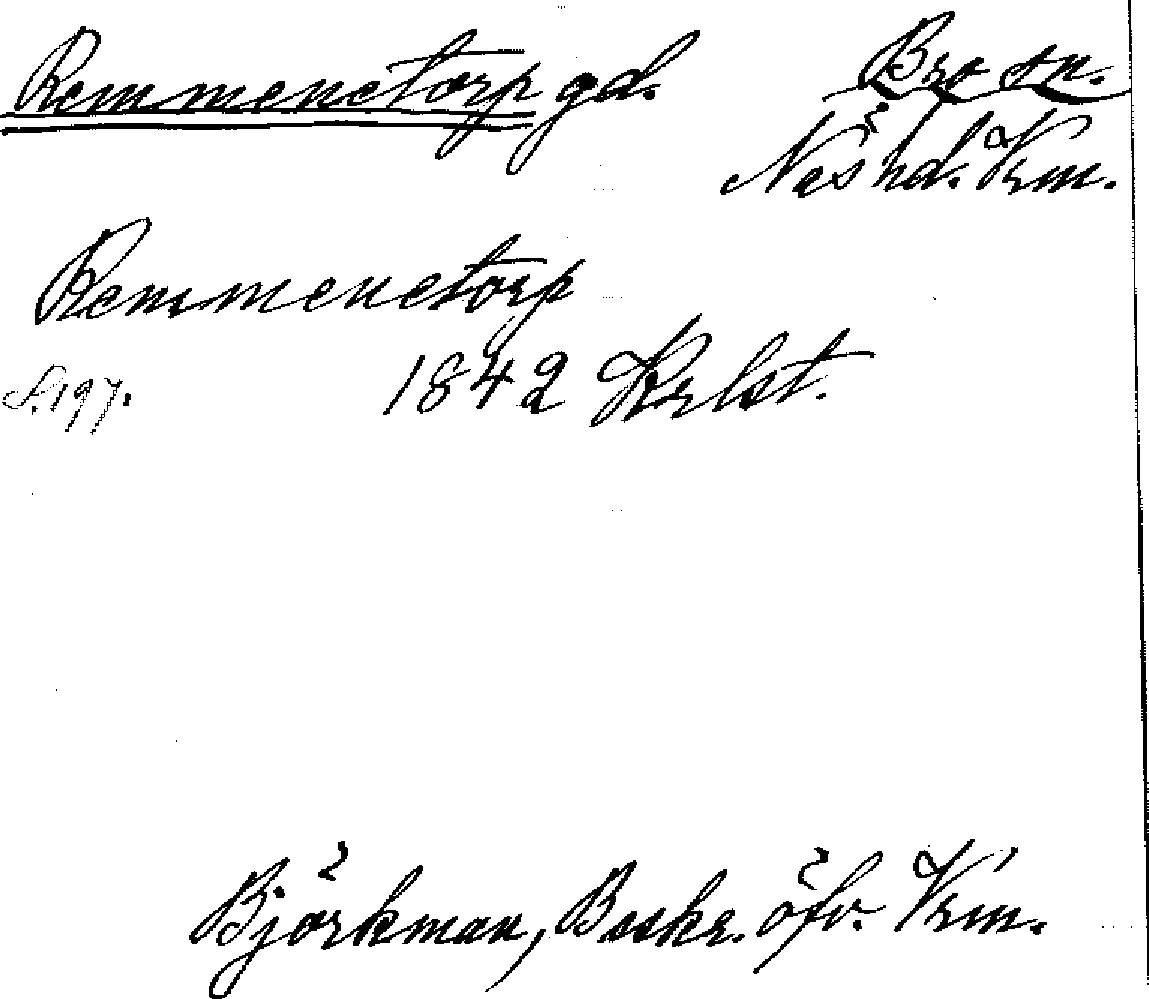 Remmenetorp gd. Bro sn.
Näs hd. Vrm.
Remmenetorp
S. 197. 1842 Krlst.
Björkman, Beskr. öfv. Vrm.